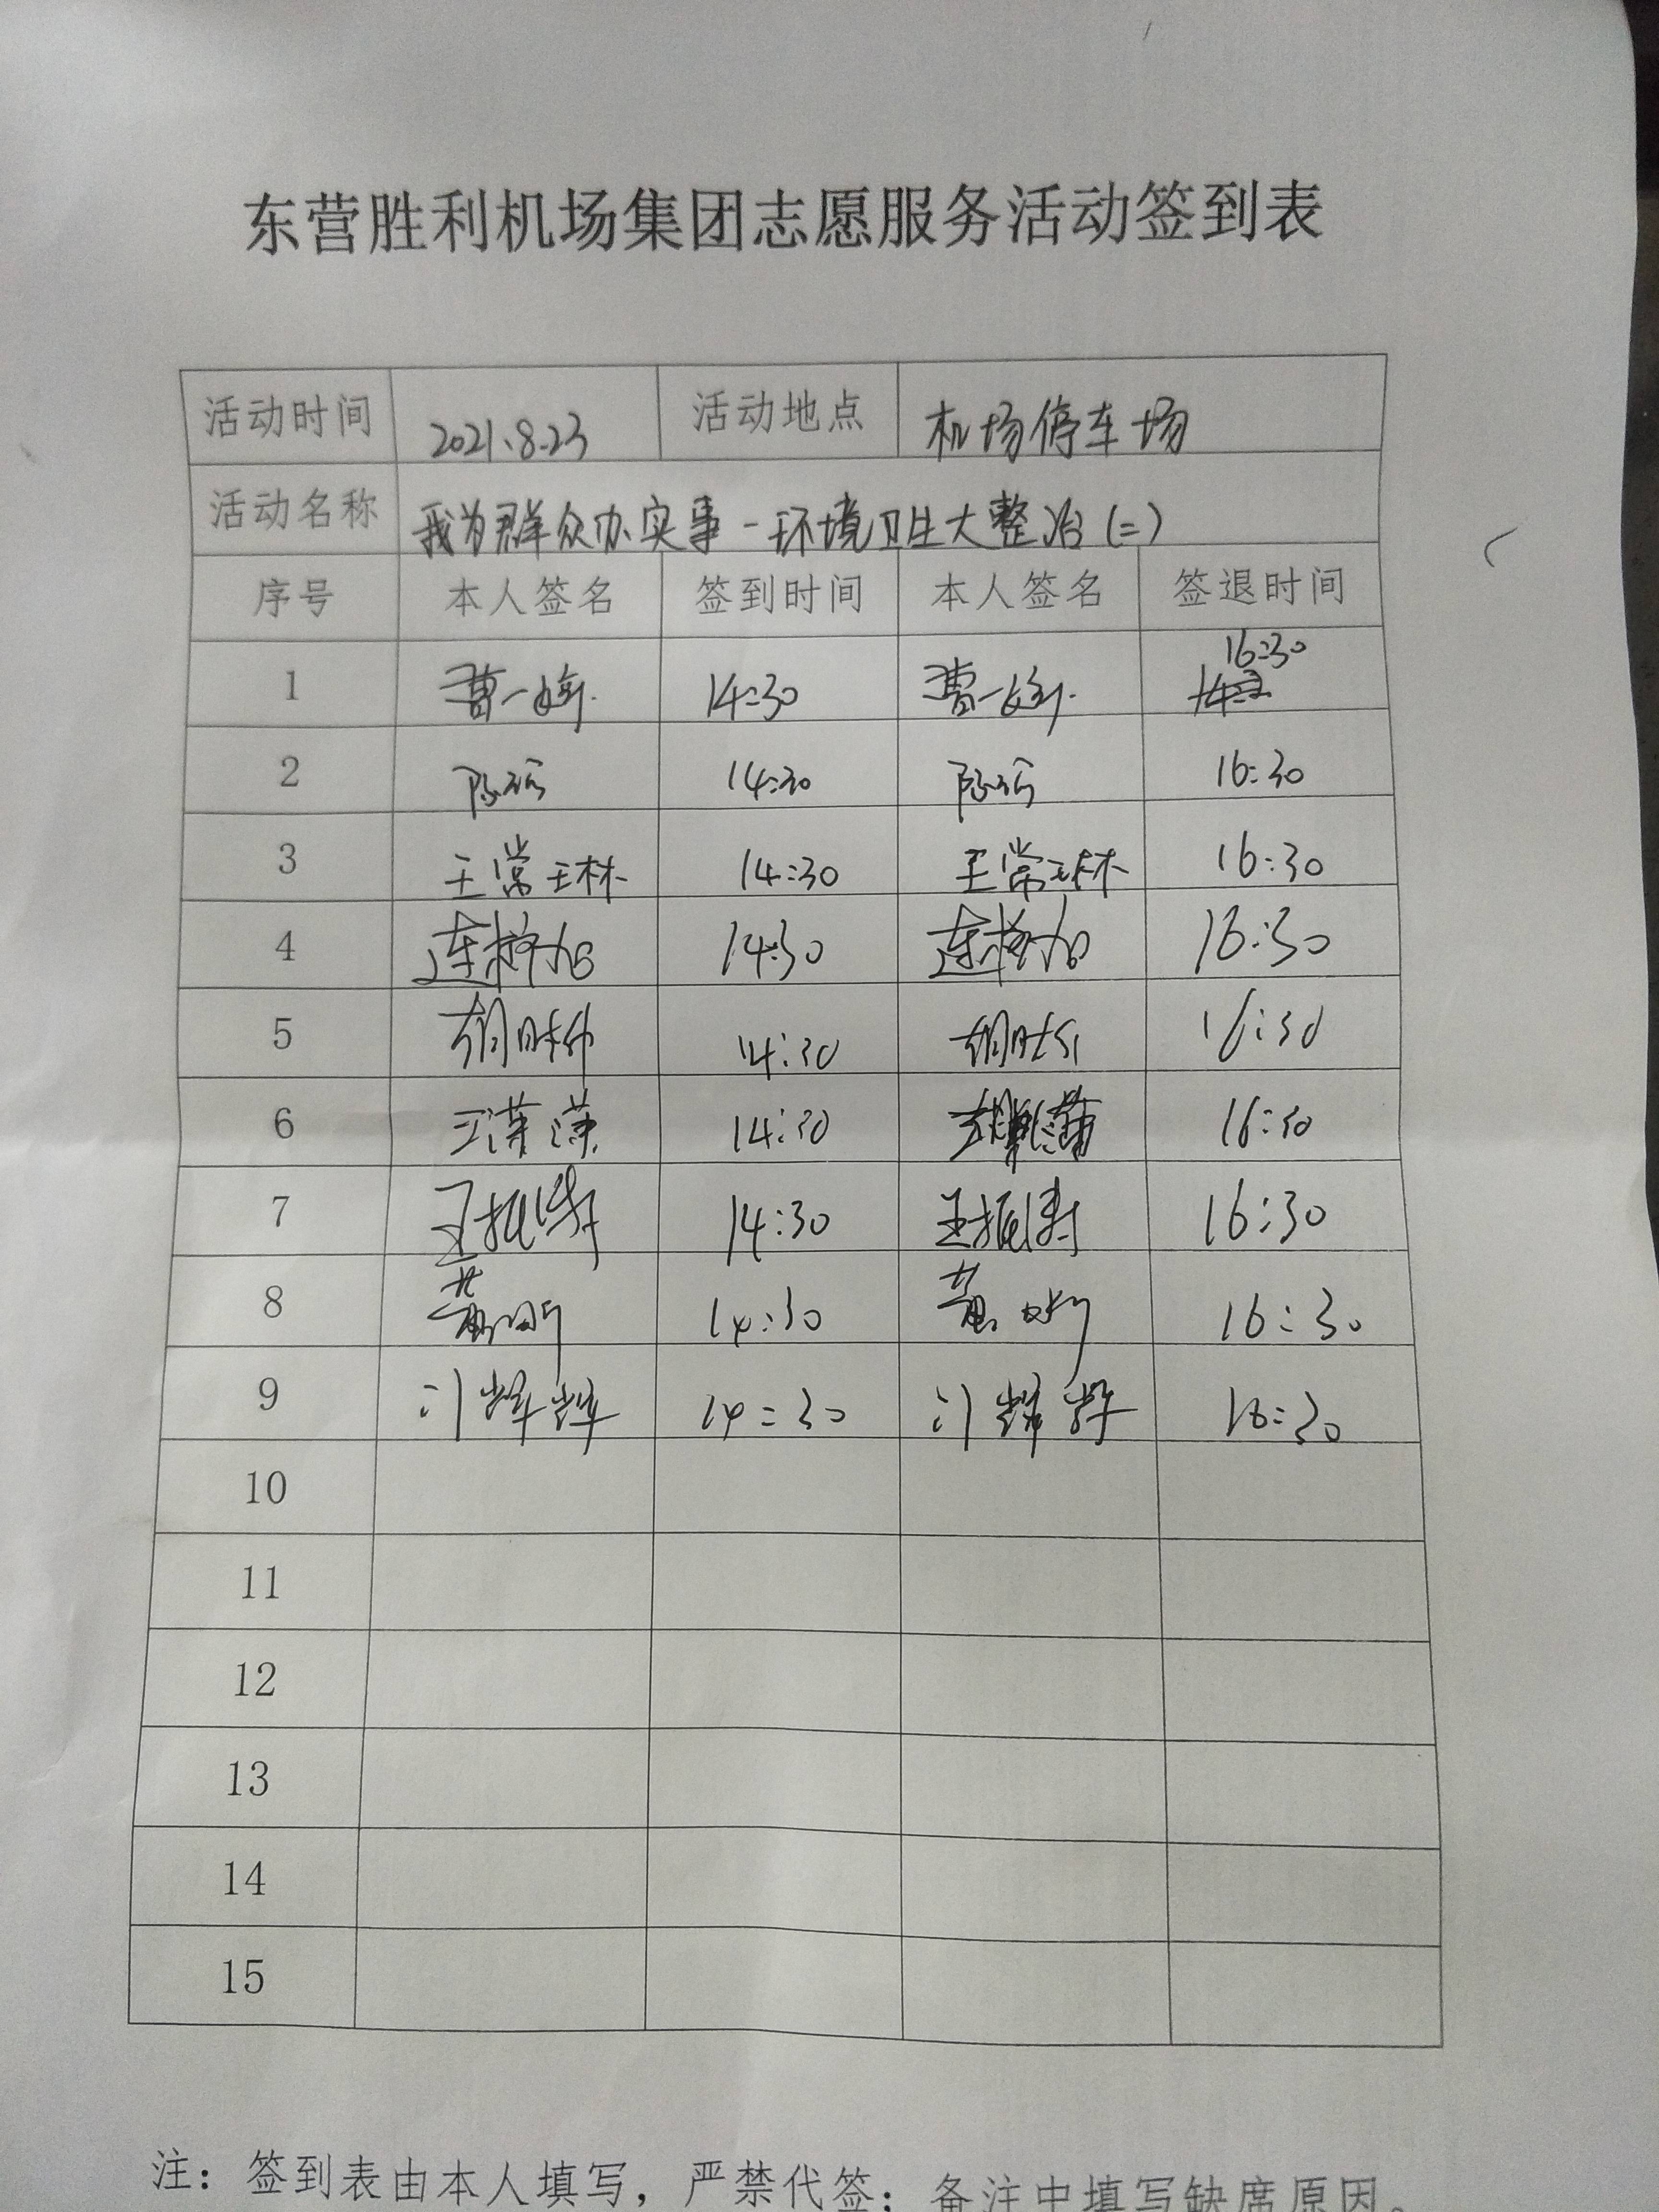 东营胜利机场集团志愿服务活动签到表
活动时间 2021.8.23 活动地点 机场停车场
活动名称 我为群众办实事-环境卫生大整治(二)
序号 本人签名 签到时间 本人签名 签退时间
1 曹一 14:30 曹一 16:30
2 14:30 16:30
3 王常琳 14:30 王常琳 16:30
4 连 14:30 连 16:30
5 14:30 16:30
6 王潇潇 14:30 16:30
7 王振涛 14:30 王振涛 16:30
8 黄 14:30 黄 16:30
9 辉辉 14:30 辉辉 16:30
10
11
12
13
14
15
注：签到表由本人填写，严禁代签；备注中填写缺席原因。